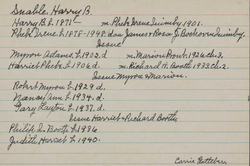 Snable, Harry B.
Harry B. b. 1871 m. Phebe Irene Quimby 1901.
Phebe Irene b. 1878-1948. dau James & Rosa J. Boohover Quimby.
Issue
Myron Adams b. 1902 d m. Marion Rout 1926. Ch. 3.
Harriet Phebe b. 1906 d. m. Richard H. Booth 1933. Ch. 2.
Issue Myron & Marion.
Robert Myron b. 1929 d.
Nancy Ann b. 1934. d.
Gary Layton b. 1937. d.
Issue Harriet & Richard Booth
Philip D. Booth b. 1934
Judith Harriet b. 1940.
Carrie